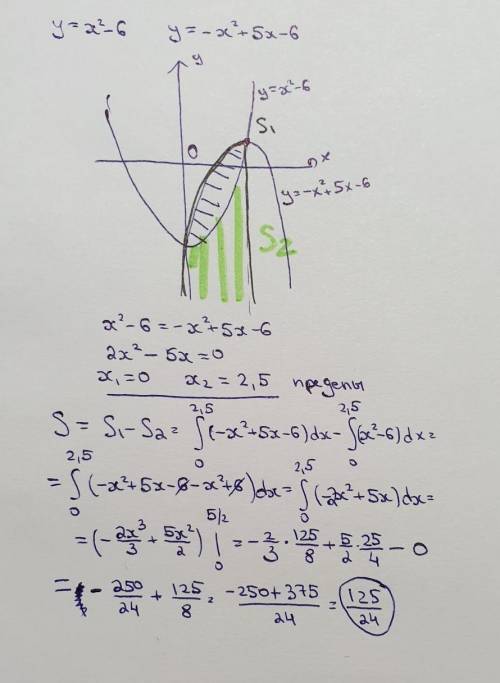 y = x² - 6   y = -x² + 5x - 6
y
y = x² - 6
S₁
0
x
y = -x² + 5x - 6
S₂
x² - 6 = -x² + 5x - 6
2x² - 5x = 0
x₁ = 0   x₂ = 2,5   пределы
S = S₁ - S₂ = ∫₀^2,5 (-x² + 5x - 6) dx - ∫₀^2,5 (x² - 6) dx =
= ∫₀^2,5 (-x² + 5x - 6 - x² + 6) dx = ∫₀^2,5 (-2x² + 5x) dx =
= (-2x³/3 + 5x²/2) |₀^5/2 = -2/3 · 125/8 + 5/2 · 25/4 - 0
= -250/24 + 125/8 = (-250 + 375)/24 = 125/24